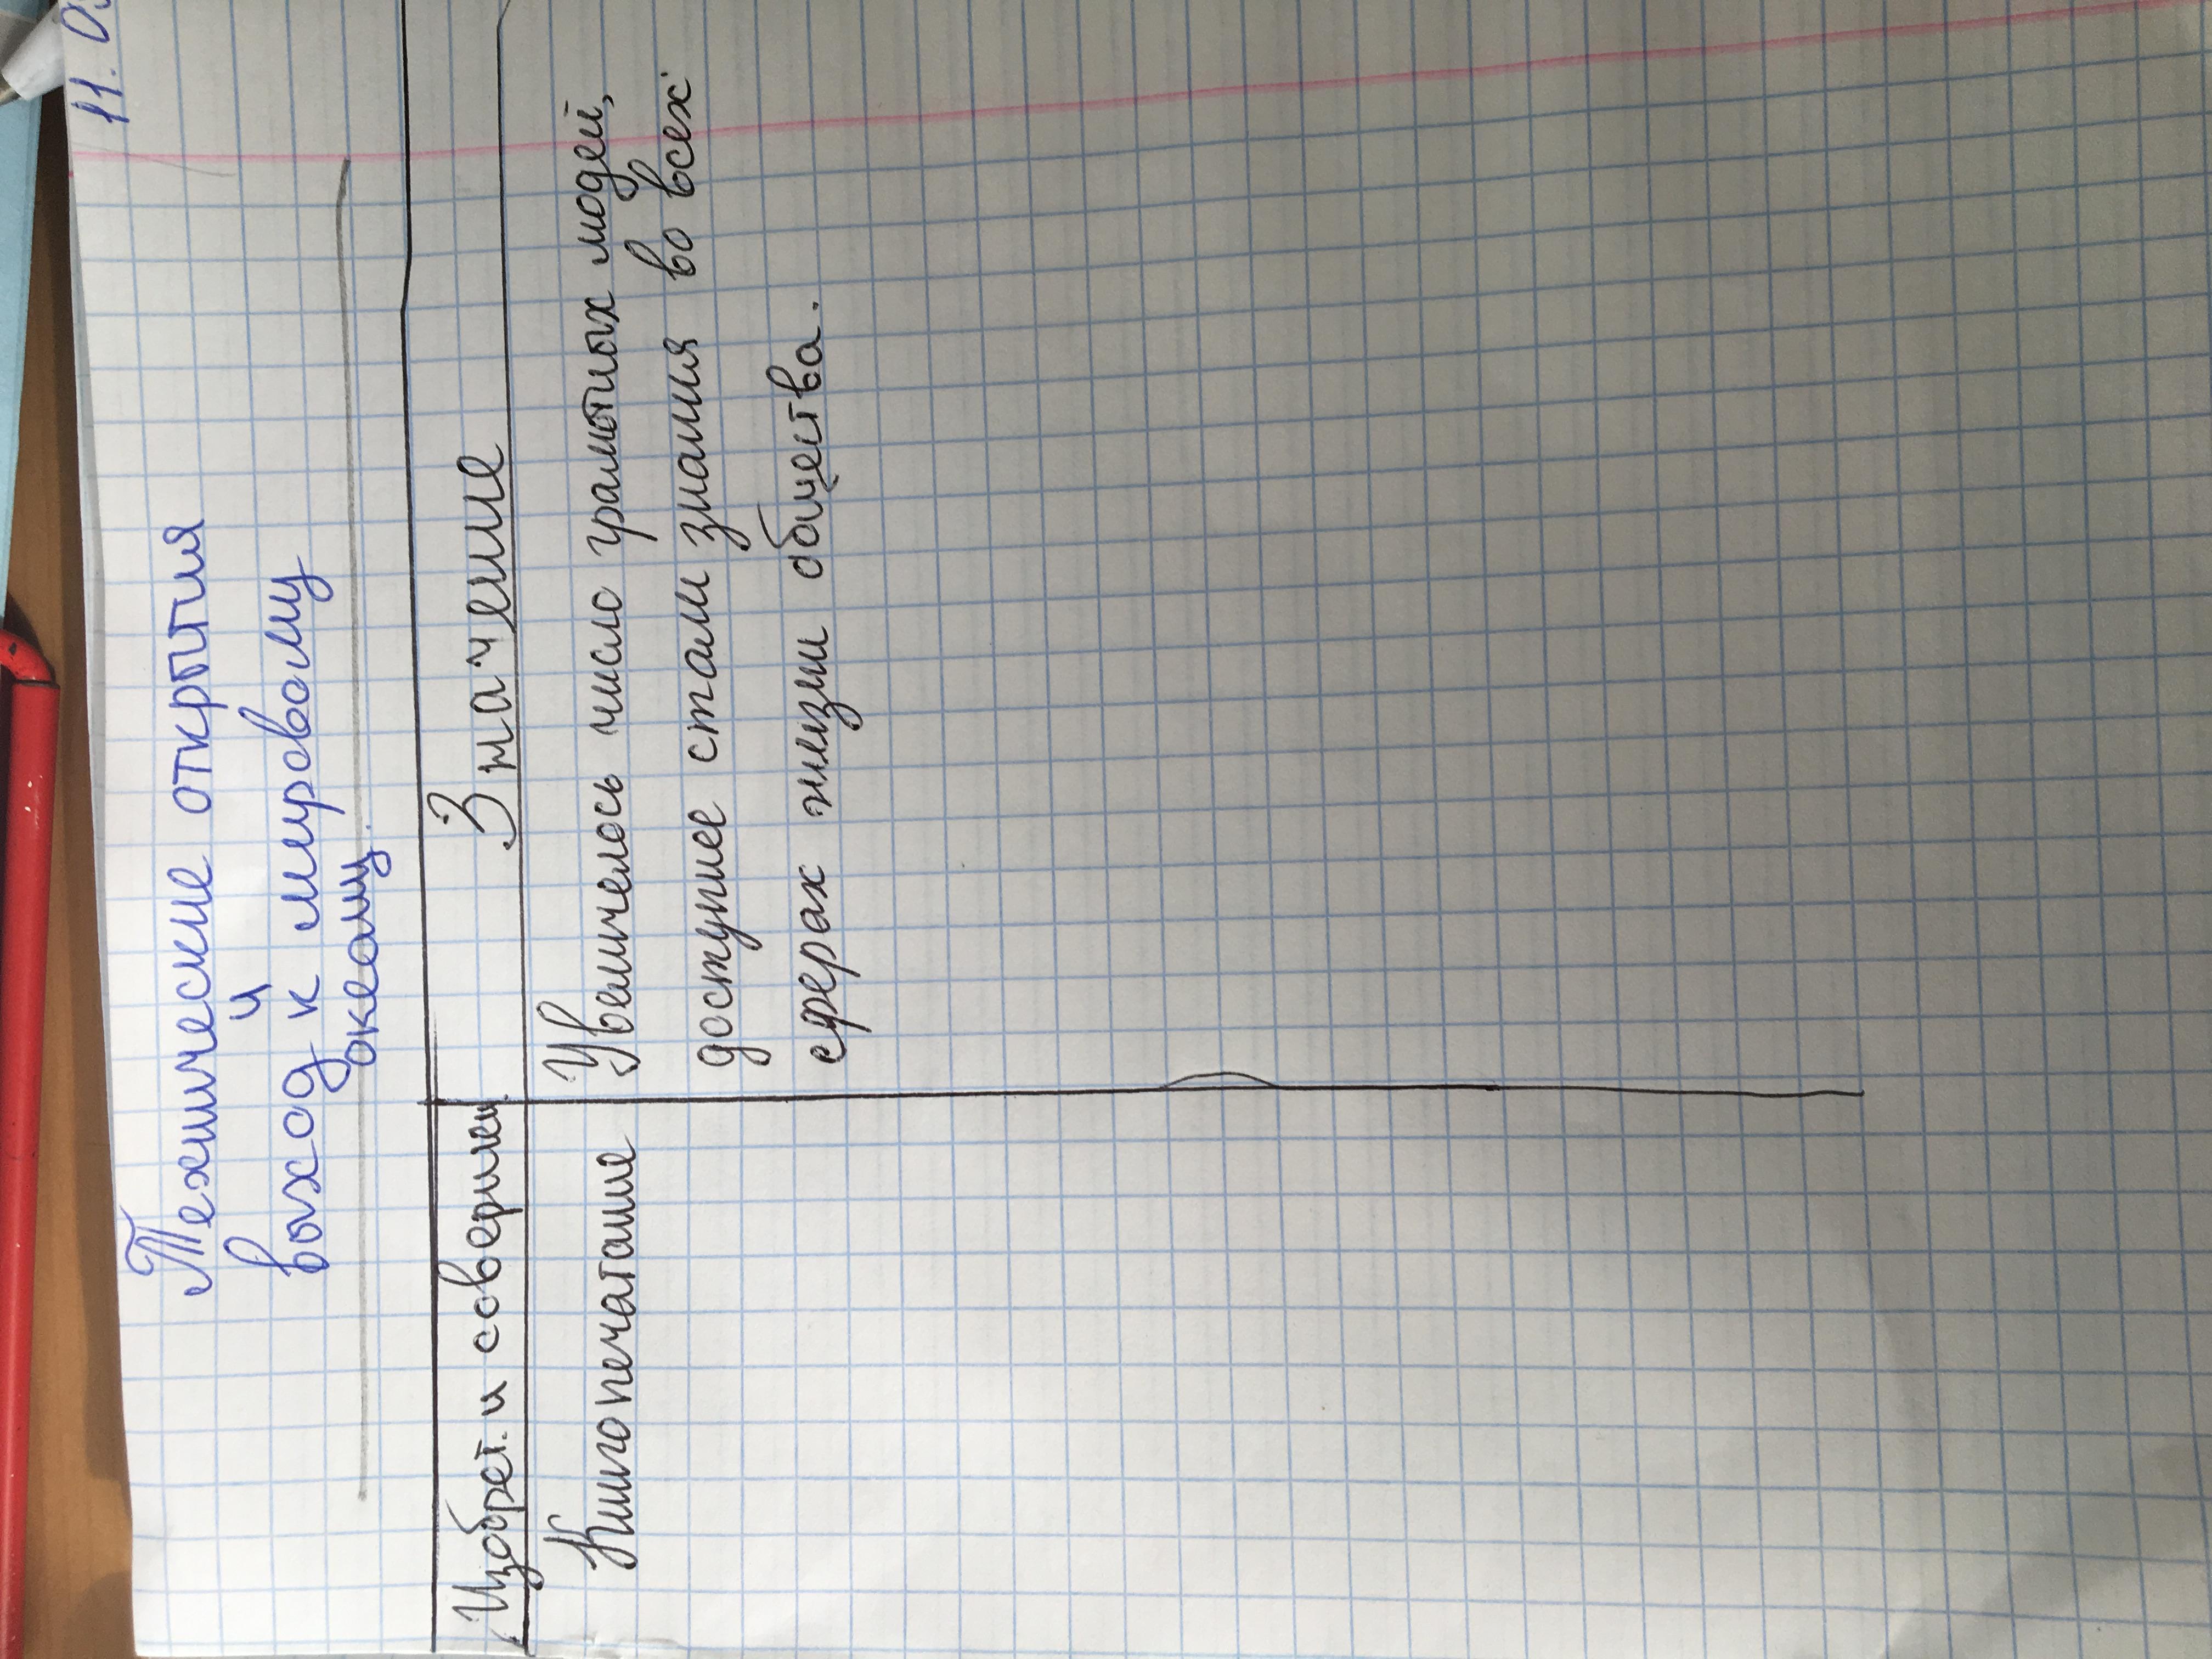 11. 0
Технические открытия
и
выход к мировому
океану.
Изобрет. и совершен. Значение
Книгопечатание Увеличелось число грамотных людей,
доступнее стали знания во всех
сферах жизни общества.